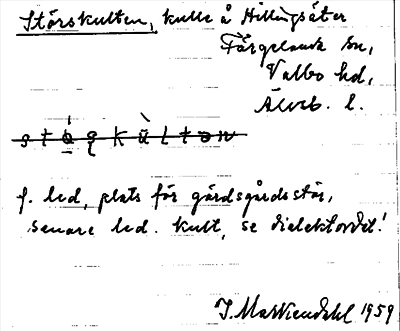 Störskulten, kulle å Hillingsäter
Färgelanda sn,
Valbo hd,
Älvsb. l.
f. led, plats för gärdsgårdsstör,
senare led. kult, se dialektordet!
J. Markendahl 1959